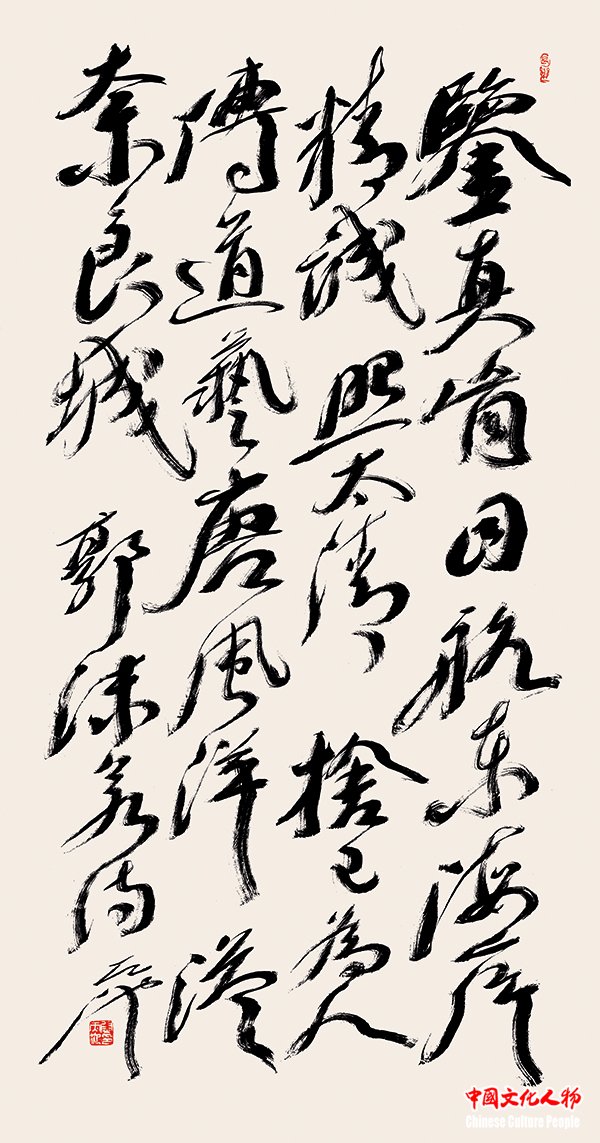 鑒真盲目航東海一片
精誠照太清捨己為人
傳道藝唐風洋溢
奈良城郭沫若詩
中國文化人物
Chinese Culture People